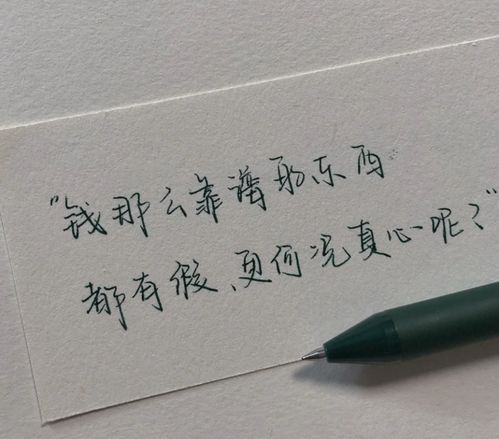 "钱那么靠谱的东西
都有假、更何况真心呢?"